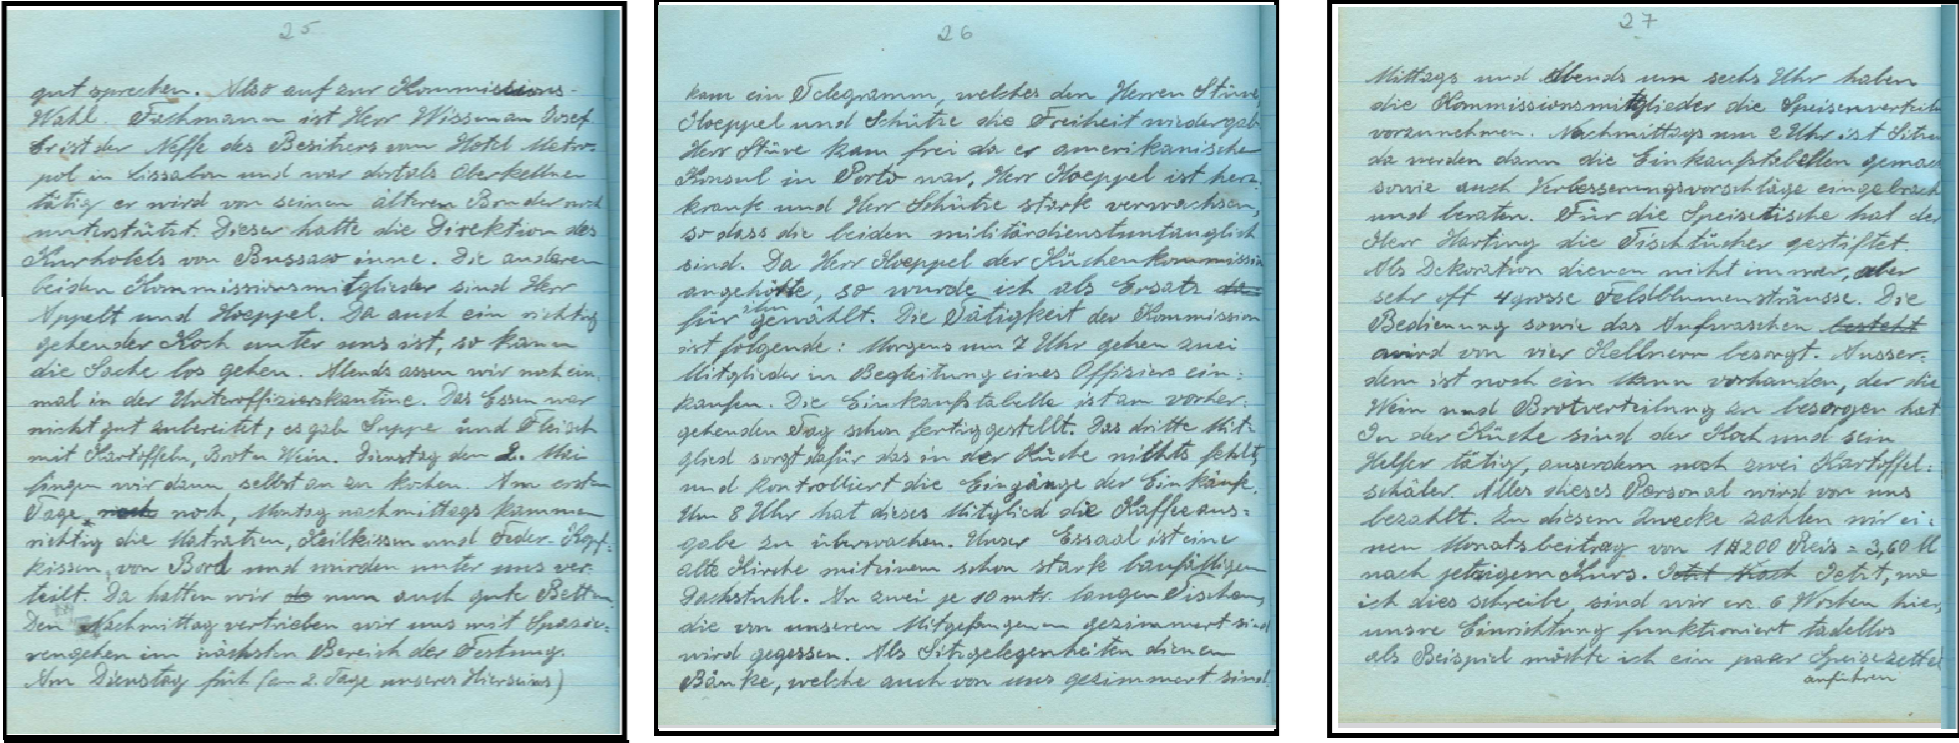 25
gut sprechen. Also auf zur Kommissions-
Wahl. Fachmann ist Herr Wissmann Josef.
Er ist der Neffe des Besitzers vom Hotel Metro-
pol in Lissabon und war dort als Oberkellner
tätig er wird von seinem älteren Bruder noch
unterstützt. Dieser hatte die Direktion des
Kurhotels von Bussaco inne. Die anderen
beiden Kommissionsmitglieder sind Herr
Appelt und Hoeppel. Da auch ein richtig
gehender Koch unter uns ist, so kann
die Sache los gehen. Abends assen wir noch ein-
mal in der Unteroffizierskantine. Das Essen war
nicht gut zubereitet, es gab Suppe und Fleisch
mit Kartoffeln, Brot u Wein. Dienstag den 2. Mai
fingen wir dann selbst an zu kochen. Am ersten
Tage noch noch, Montag nachmittags kammen
richtig die Matratzen, Keilkissen und Feder-Kopf-
kissen, von Bord und wurden unter uns ver-
teilt. Da hatten wir nun auch gute Betten.
Den Nachmittag vertrieben wir uns mit Spazie-
rengehen im nächsten Bereich der Festung.
Am Dienstag früh (am 2. Tage unseres Hierseins)
26
kam ein Telegramm, welches den Herren Stüve,
Hoeppel und Schütze die Freiheit wiedergab.
Herr Stüve kam frei da er amerikanischer
Konsul in Porto war, Herr Hoeppel ist herz-
krank und Herr Schütze stark verwachsen,
so dass die beiden militärdienstuntauglich
sind. Da Herr Hoeppel der Küchenkommission
angehörte, so wurde ich als Ersatz
für ihn gewählt. Die Tätigkeit der Kommission
ist folgende: Morgens um 7 Uhr gehen zwei
Mitglieder in Begleitung eines Offiziers ein-
kaufen. Die Einkaufstabelle ist am vorher-
gehenden Tag schon fertiggestellt. Das dritte Mit-
glied sorgt dafür das in der Küche nichts fehlt,
und kontrolliert die Eingänge der Einkäufe.
Um 8 Uhr hat dieses Mitglied die Kaffeeaus=
gabe zu überwachen. Unser Essaal ist eine
alte Kirche mit einem schon stark baufälligen
Dachstuhl. An zwei je 10 mtr. langen Tischen,
die von unseren Mitgefangenen gezimmert sind
wird gegessen. Als Sitzgelegenheiten dienen
Bänke, welche auch von uns gezimmert sind.
27
Mittags und Abends um sechs Uhr haben
die Kommissionsmitglieder die Speisenverteil
vorzunehmen. Nachmittags um 2 Uhr ist Sitzu
da werden dann die Einkaufstabellen gemac
sowie auch Verbesserungsvorschläge eingebrach
und beraten. Für die Speisetische hat der
Herr Harting die Tischtücher gestiftet.
Als Dekoration dienen nicht immer, aber
sehr oft 4 grosse Feldblumensträusse. Die
Bedienung sowie das Aufwaschen besteht
wird von vier Kellnern besorgt. Ausser-
dem ist noch ein Mann vorhanden, der die
Wein und Brotverteilung zu besorgen hat
In der Küche sind der Koch und sein
Helfer tätig, auserdem noch zwei Kartoffel-
schäler. Alles dieses Personal wird von uns
bezahlt. Zu diesem Zwecke zahlen wir ei-
nen Monatsbeitrag von 1#200 Reis = 3,60 M
nach jetzigem Kurs. Jetzt Noch Jetzt, wo
ich dies schreibe, sind wir ca. 6 Wochen hier,
unsre Einrichtung funktioniert tadellos
als Beispiel möchte ich ein paar Speisezettel
anführen